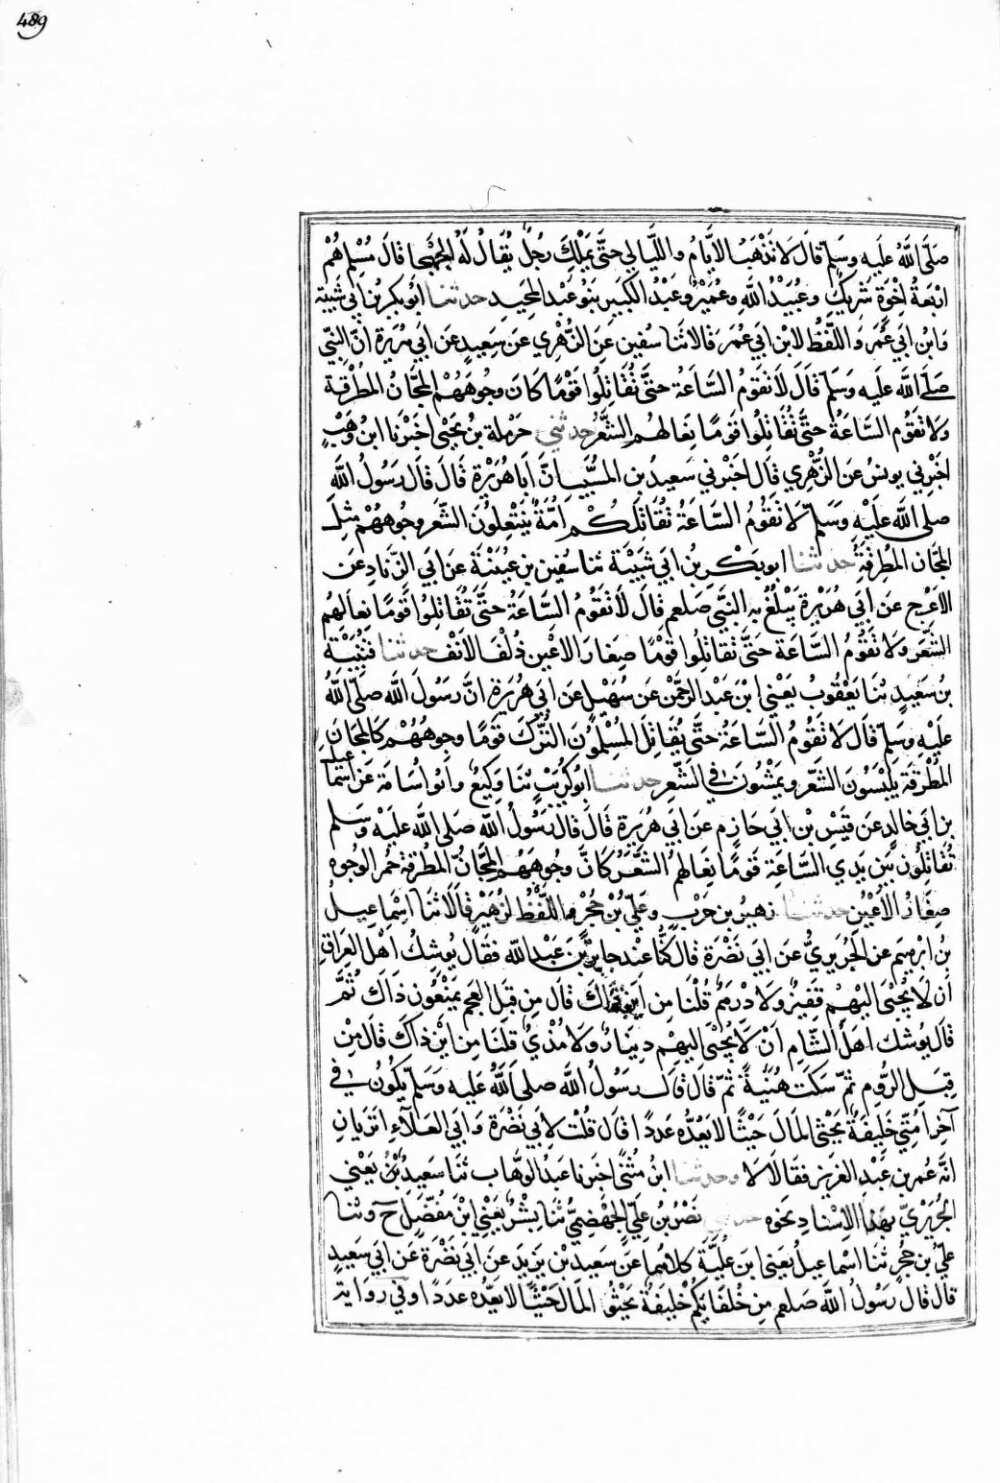 489
صَلَّى اللهُ عَلَيهِ وسَلَّم قَالَ لا تَذْهَبُ الاَيَّامُ واللَّيَالِي حتَّى يَمْلِكَ رَجُلٌ يُقَالُ لَهُ الجَهْجَا قالَ مُسْلِم هُمْ
ارْبَعَةُ اِخْوَةٍ شَرِيكٌ وعُبَيْدُ اللهِ وعُمَيْرٌ وعَبْدُ الكَبِيرِ بَنُو عَبْدِ المَجِيدِ حدثنا ابُو بكر بن ابي شيبة
وَابْن ابي عُمَرَ وَاللَّفْظُ لابْن ابي عُمَرَ قالا ثَنَا سُفين عَنِ الزُّهْري عن سَعِيدٍ عَن ابي هريرة انّ النبي
صَلَّى اللَّه عليه وَسَلَّم قَالَ لَا تَقُومُ السَّاعَةُ حَتَّى تُقَاتِلُوا قَوْمًا كَانَ وجُوهَهُمْ المَجَانُّ المُطْرَقَة
وَلا تَقُوم السَّاعَةُ حتَّى تُقَاتِلُوا قَومًا نِعَالهُم الشَّعْرُ حدثني حَرْمَلة بن يَحْيَى اخبَرَنا ابنُ وَهْبٍ
اخبَرني يونسُ عَن الزُّهْرِي قَال اخبَرني سَعِيدُ بن المُسَيَّب انَّ اَبَا هُرَيْرَةَ قَالَ قَالَ رَسُولُ اللَّه
صلى الله عَلَيْهِ وَسَلَّم لَا تَقُومُ السَّاعَةُ تُقَاتِلُكُمْ اُمَّةٌ يَنْتَعِلُونَ الشَّعَرَ وجُوهُهُمْ مِثلُ
المَجَان المُطْرَقَةِ حدثنا ابو بَكْرِ بن ابي شَيْبَةَ ثنا سُفين بن عُيَيْنَةَ عَن ابي الزِّنَادِ عَن
الاَعْرَج عَن ابي هُرَيْرَةَ يَبْلُغُ به النَّبِي صَلعم قَال لا تَقُومُ السَّاعَةُ حتَّى تُقَاتِلُوا قَومًا نعَالهُم
الشَّعَر ولا تَقُومُ السَّاعَة حَتَّى تقاتِلُوا قَوْمًا صِغَارَ الاعْيُن ذُلْفَ الانْف حدثنا قتَيْبَة
بنُ سَعِيدٍ ثنَا يَعْقُوبُ يَعْنِي ابْن عَبْدِ الرَّحْمٰن عَن سُهَيْلٍ عَن ابي هُرَيرَة انَّ رَسُولَ اللَّه صلى اللَّهُ
عَلَيْهِ وسَلَّم قَال لا تَقُومُ السَّاعَةُ حتَّى يُقَاتِلَ المُسْلِمُونَ التُّرْكَ قَومًا وجوهُهُمْ كَالمَجَانِ
المُطْرقَة يلبَسُونَ الشَّعَر ويَمْشُونَ في الشَّعَرِ حدثنا ابُو كُرَيْبٍ ثنَا وَكِيعٌ وابُو اُسَامَة عَن اسْمَاعيل
بن ابي خَالِدٍ عَن قَيْسِ بْن ابي حَازِمٍ عَن ابي هُرَيرَة قَالَ قَال رَسُولُ اللَّه صَلى الله عَلَيْهِ وَسَلم
تُقَاتِلُونَ بَينَ يَدي السَّاعَةِ قَومًا نِعَالهُمُ الشَّعَرُ كَانَّ وجُوهَهُم المَجَانُّ المطْرقة حُمْر الوجُوه
صِغَارُ الاَعْيُن حدثنا زهيرُ بن حَرْبٍ وعَليُّ بْنُ حُجْرٍ واللَّفْظُ لزُهَيْرٍ قَالَا ثنَا اِسْمَاعِيلُ
بنُ ابرهيم عن الجُرَيريُّ عَن ابي نَضْرَةَ قَال كُنَّا عند جَابِرِ بْنِ عَبْدِ اللّه فقَالَ يُوشِكُ اهْلُ العِرَاقِ
اَن لا يُجْبَى اليْهِمْ قَفِيزٌ ولا دِرْهَمٌ قُلْنَا من اَيْنَ ذَاكَ قَالَ مِن قِبَلِ العَجَمِ يمْنَعُونَ ذَاكَ ثُمَّ
قَال يُوشك اهْلُ الشَّامِ اَنْ لَا يُجْبَى اليهِمْ دِينَارٌ ولَا مُدْيٌ قلنَا مِن اَيْنَ ذاكَ قَال مِنْ
قِبَلِ الرُّوم ثُمّ سَكَتَ هُنَيَّةً ثمّ قَالَ قَالَ رسُولُ الله صلى اللهُ عَلَيهِ وَسَلَّم يَكُونُ في
آخِرِ اُمَّتِي خَلِيفَةٌ يَحْثِي المَالَ حَثْيًا لا يَعُدُّه عَددًا قَال قُلْتُ لابي نَضْرَة وَابي العَلَاءِ اتَرَيَانِ
انّهُ عُمر بن عَبْدِ العَزيز فقَالا لا وحدثنا ابنُ مُثَنَّى اخبرنا عَبدُ الوَهَّاب ثنَا سَعِيدُ بْنُ يَعْنِي
الجُرَيْرِيَّ بهَذَا الاِسْنَادِ نحوه حدثني نَصْرُ بن عَلِيّ الجَهْضَمِيُّ ثنَا بِشْرٌ يَعْنِي ابْن مُفَضَّلٍ ح وثنا
عَلِيُّ بن حُجْرٍ ثنَا اسْماعِيلُ يَعنى ابن عُلَيَّة كلاهُما عَن سَعِيد بْن يَزيدَ عَن ابي نَضْرَةَ عَن ابي سَعِيدٍ
قالَ قَالَ رَسُولُ اللَّه صَلعم مِن خُلَفَائِكُمْ خليفَةٌ يَحْثُو المَالَ حَثْيًا لا يَعُدُّه عدَدًا وفي روايَة